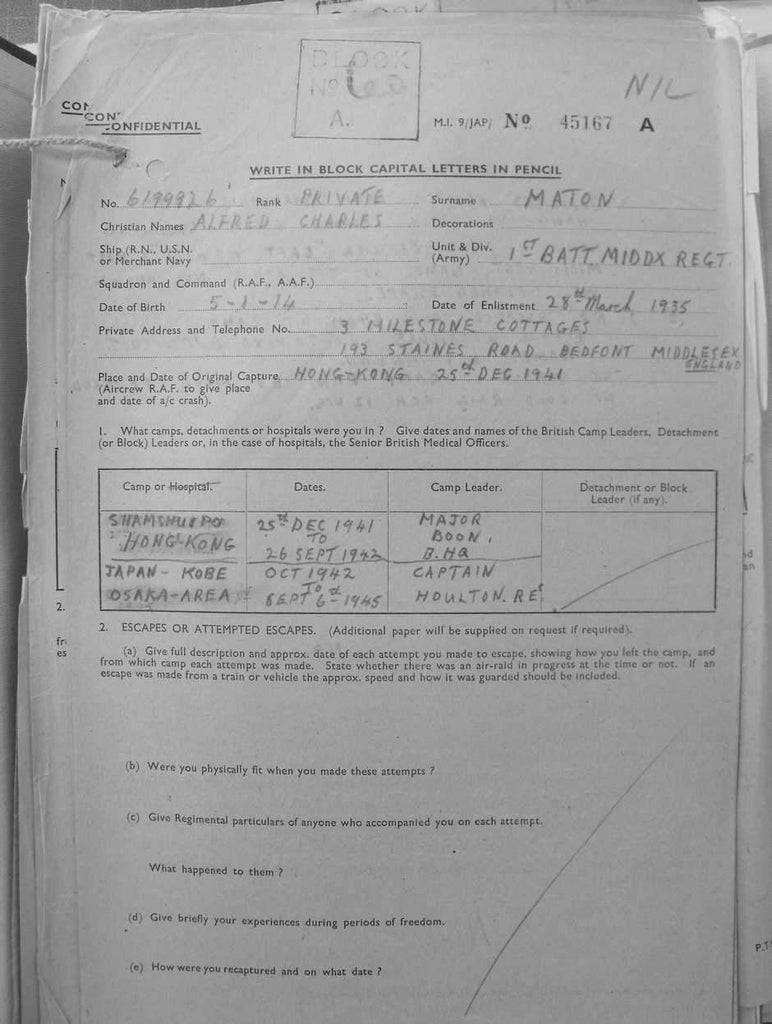 BLOCK
No
A.
N/L
CON
CON
CONFIDENTIAL
M.I. 9/JAP/ No 45167 A
WRITE IN BLOCK CAPITAL LETTERS IN PENCIL
No. 6199926 Rank PRIVATE Surname MATON
Christian Names ALFRED CHARLES Decorations
Ship (R.N., U.S.N. or Merchant Navy
Unit & Div. (Army) 1ST BATT. MIDDX REGT.
Squadron and Command (R.A.F., A.A.F.)
Date of Birth 5-1-14 Date of Enlistment 28th March 1935
Private Address and Telephone No. 3 MILESTONE COTTAGES
193 STAINES ROAD BEDFONT MIDDLESEX
ENGLAND
Place and Date of Original Capture HONG-KONG 25th DEC 1941
(Aircrew R.A.F. to give place
and date of a/c crash).
1. What camps, detachments or hospitals were you in ? Give dates and names of the British Camp Leaders, Detachment
(or Block) Leaders or, in the case of hospitals, the Senior British Medical Officers.
Camp or Hospital. Dates. Camp Leader. Detachment or Block
Leader (if any).
SHAMSHUIPO 25th DEC 1941 MAJOR
HONG-KONG TO BOON,
26 SEPT 1942 B.HQ
JAPAN - KOBE OCT 1942 CAPTAIN
OSAKA-AREA TO SEPT 6th 1945 HOULTON. RE
2. ESCAPES OR ATTEMPTED ESCAPES. (Additional paper will be supplied on request if required).
(a) Give full description and approx. date of each attempt you made to escape, showing how you left the camp, and
from which camp each attempt was made. State whether there was an air-raid in progress at the time or not. If an
escape was made from a train or vehicle the approx. speed and how it was guarded should be included.
(b) Were you physically fit when you made these attempts ?
(c) Give Regimental particulars of anyone who accompanied you on each attempt.
What happened to them ?
(d) Give briefly your experiences during periods of freedom.
(e) How were you recaptured and on what date ?
2.
fr
es
P.T